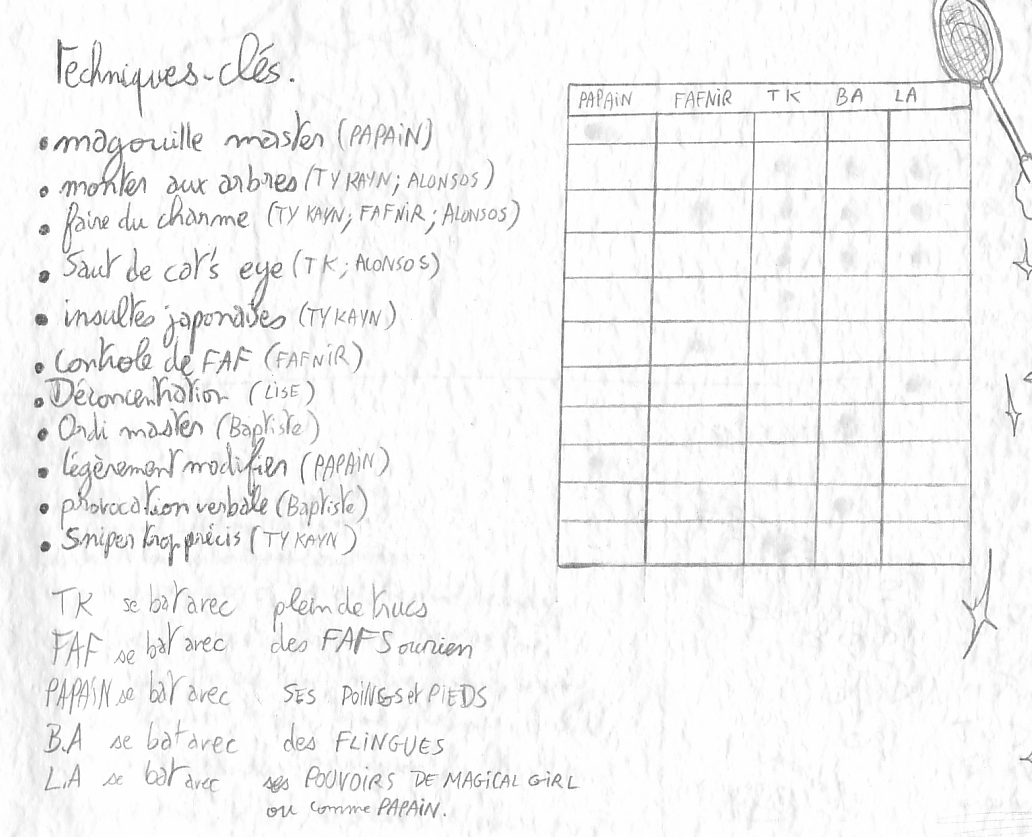 Techniques-clés.
• magouille master (PAPAiN)
• monter aux arbres (TY KAYN; ALONSOS)
• faire du charme (TY KAYN; FAFNiR; ALONSOS)
• Saut de cat's eye (TK; ALONSOS)
• insultes japonaises (TY KAYN)
• Contrôle de FAF (FAFNiR)
• Déconcentration (LiSE)
• Ordi master (Baptiste)
• légèrement modifier (PAPAiN)
• provocation verbale (Baptiste)
• Sniper trop précis (TY KAYN)
PAPAiN FAFNiR TK BA LA
TK se bat avec plein de trucs
FAF se bat avec des FAFS ou rien
PAPAiN se bat avec SES POiNGS et PiEDS
B.A se bat avec des FLiNGUES
L.A se bat avec ses POUVOiRS DE MAGiCAL GiRL
ou comme PAPAiN.